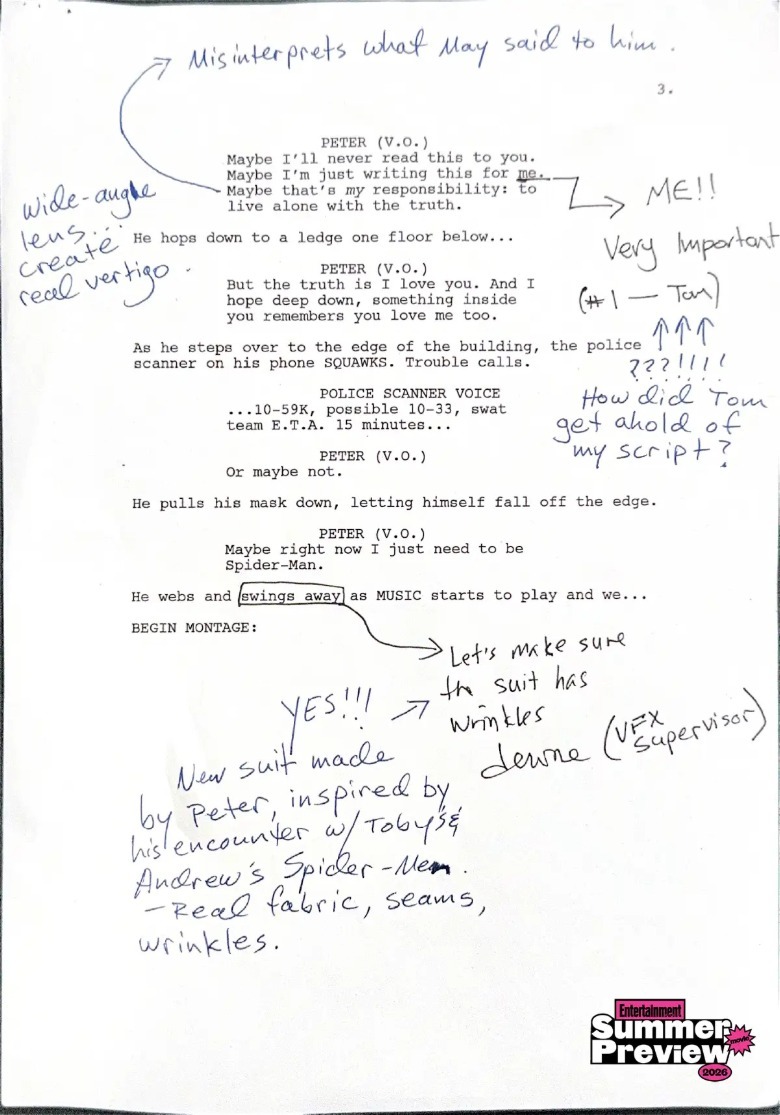 Misinterprets what May said to him.
3.
PETER (V.O.)
Maybe I'll never read this to you.
Maybe I'm just writing this for me.
Maybe that's my responsibility: to
live alone with the truth.
wide-angle
lens...
create
real vertigo
ME!!
Very Important
(#1 — Tom)
He hops down to a ledge one floor below...
PETER (V.O.)
But the truth is I love you. And I
hope deep down, something inside
you remembers you love me too.
As he steps over to the edge of the building, the police
scanner on his phone SQUAWKS. Trouble calls.
???!!!!
How did Tom
get ahold of
my script?
POLICE SCANNER VOICE
...10-59K, possible 10-33, swat
team E.T.A. 15 minutes...
PETER (V.O.)
Or maybe not.
He pulls his mask down, letting himself fall off the edge.
PETER (V.O.)
Maybe right now I just need to be
Spider-Man.
He webs and swings away as MUSIC starts to play and we...
BEGIN MONTAGE:
Let's make sure
the suit has
wrinkles
(VFX
supervisor)
YES!!!
New suit made
by Peter, inspired by
his encounter w/ Toby's &
Andrew's Spider-Men.
— Real fabric, seams,
wrinkles.
Entertainment
Summer
movie
Preview
2026